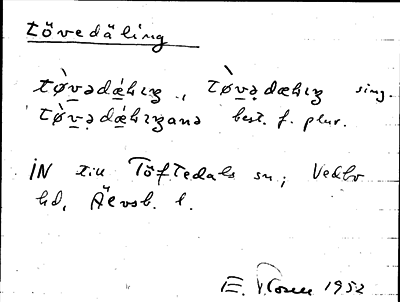 tövedäling
tø̀v̲ədæ̲lıŋ, tø̀v̲ədælıŋ sing.
tø̀v̲ədæ̲lıŋanə best. f. plur.
IN till Töftedals sn; Vedbo
hd, Älvsb. l.
E. 1952